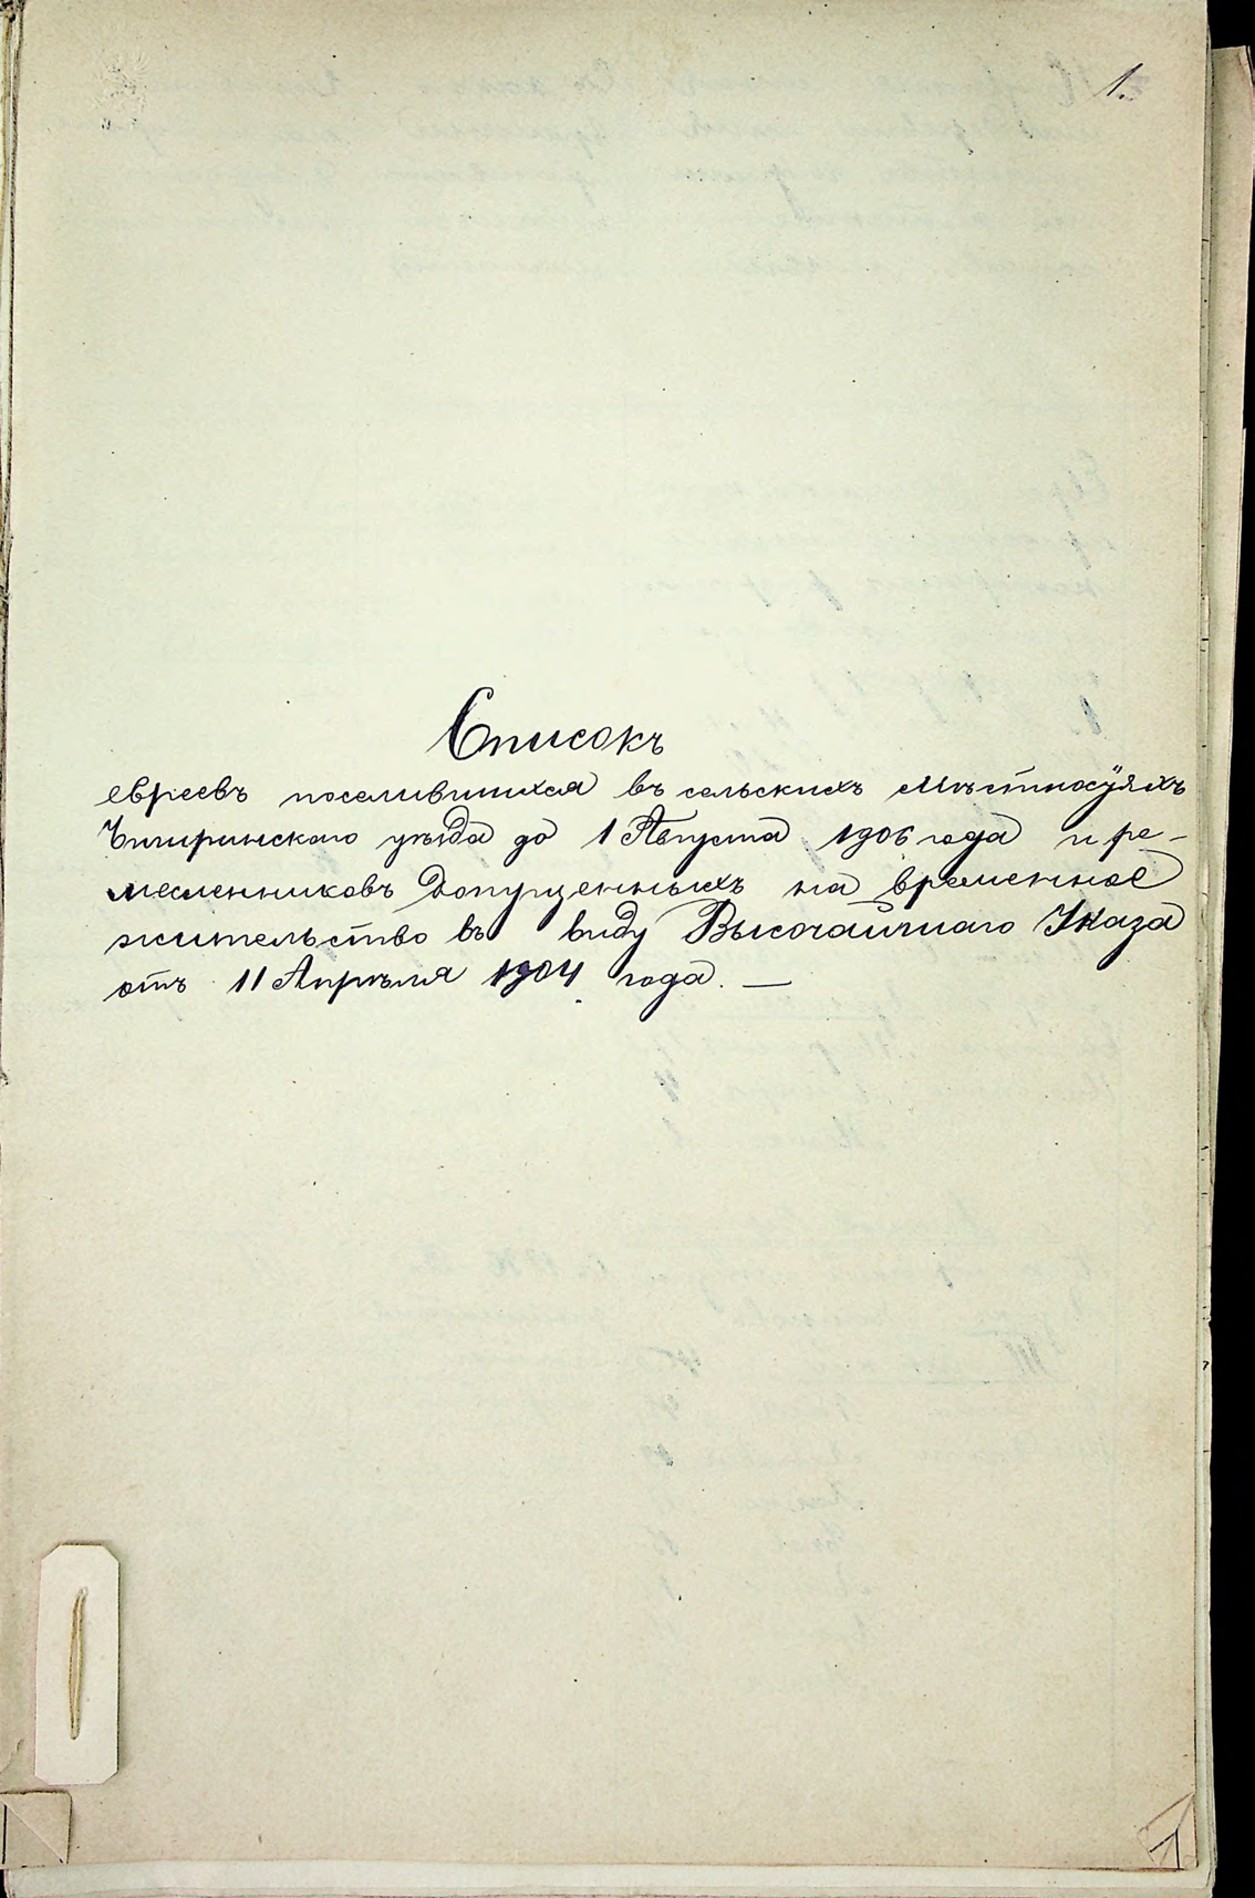 1.
Списокъ
евреевъ поселившихся въ сельскихъ мѣстностяхъ
Чигиринскаго уѣзда до 1 Августа 1906 года и ре-
месленниковъ допущенныхъ на временное
жительство въ виду Высочайшаго Указа
отъ 11 Апрѣля 1904 года. —